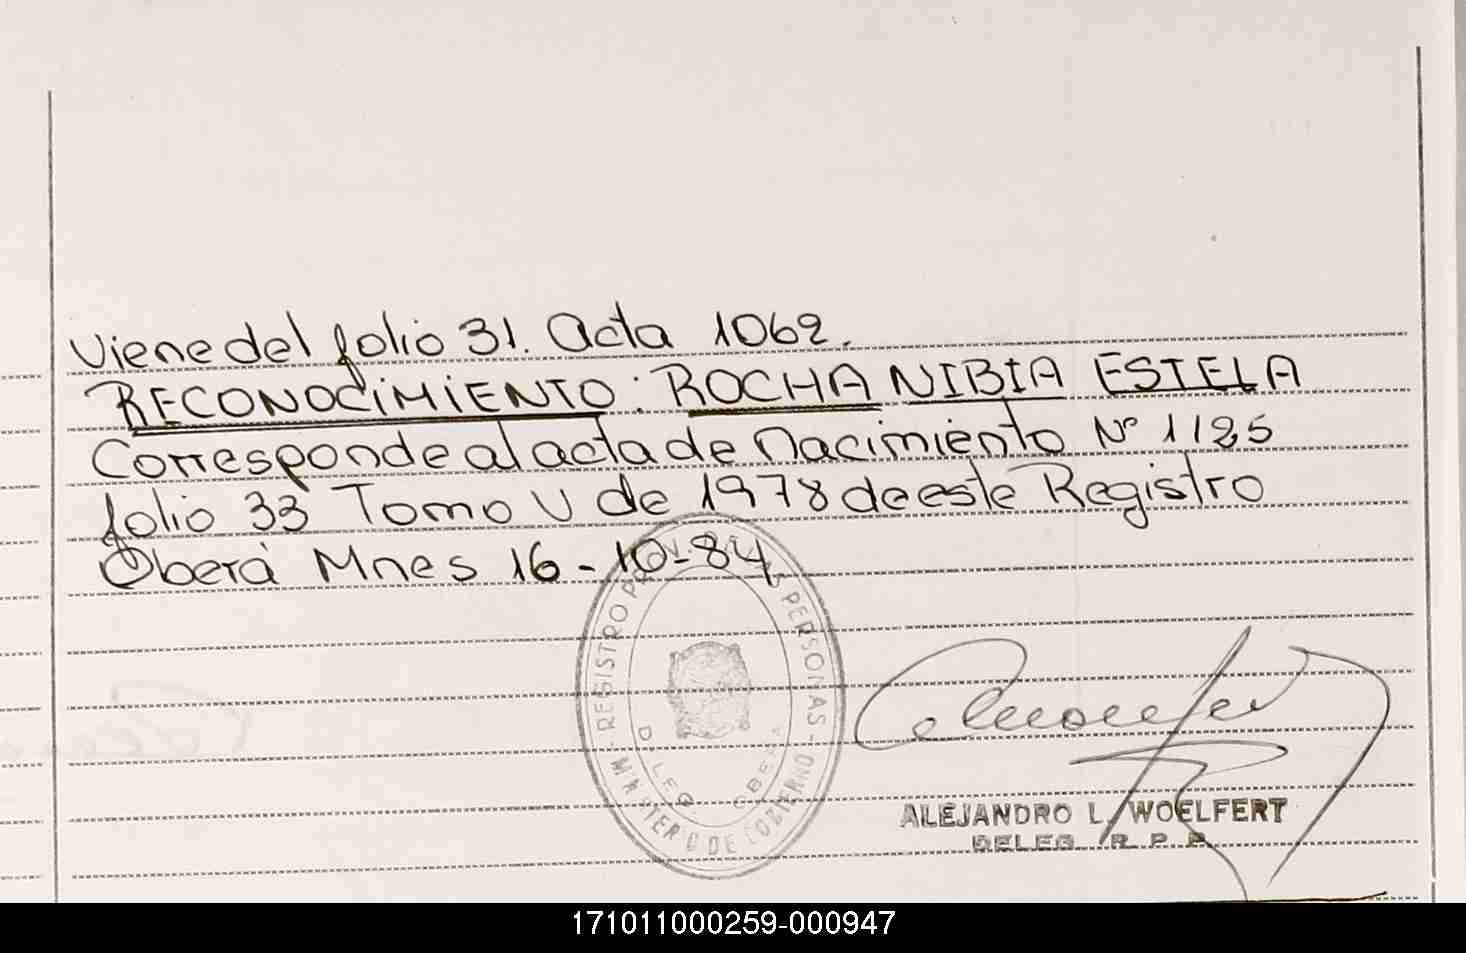 Viene del folio 31. Acta 1062.
RECONOCIMIENTO: ROCHA NIBIA ESTELA
Corresponde al acta de Nacimiento Nº 1125
folio 33 Tomo V de 1978 de este Registro
Oberá Mnes 16-10-84
REGISTRO PROV. DE LAS PERSONAS
DELEG. OBERA
MINISTERIO DE GOBIERNO
ALEJANDRO L. WOELFERT
DELEG. R. P. P.
171011000259-000947